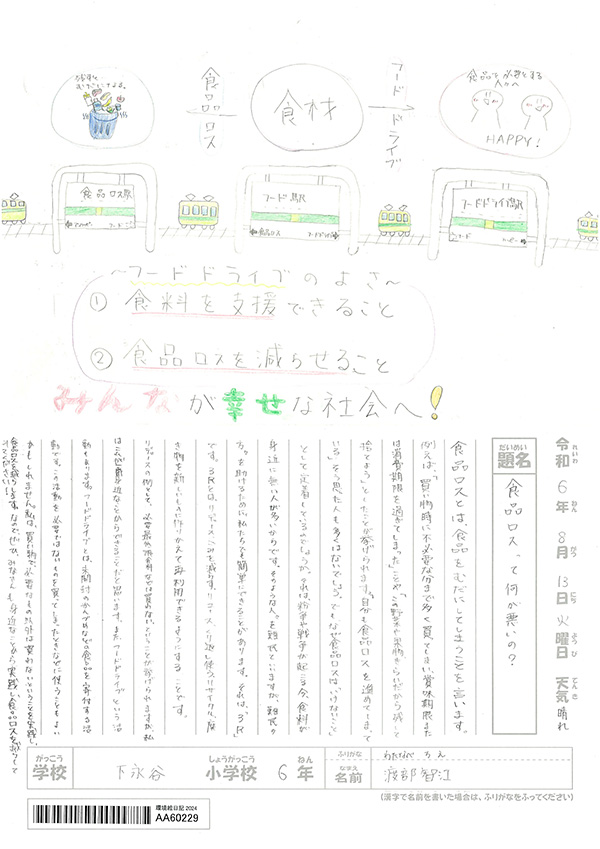 食品ロス
食材
フードドライブ
食品を必要とする
人々へ
HAPPY!
食品ロス駅
フード駅
食品ロス
フードドライブ駅
フード
~フードドライブのよさ~
① 食料を支援できること
② 食品ロスを減らせること
みんなが幸せな社会へ!
令和6年8月13日火曜日 天気 晴れ
れいわ ねん がつ にち ようび てんき
だいめい
題名
食品ロスって何が悪いの?
食品ロスとは、食品をむだにしてしまうことを言います。
例えば、「買い物時に不必要な分まで多く買ってしまい、賞味期限また
は消費期限を過ぎてしまった」ことや、「この野菜や果物きらいだから残して
捨てよう」としたことが挙げられます。自分も食品ロスを進めてしまって
いる」そう思た人も多くはないでしょう。でもなぜ食品ロスは「いけないこと」
として定着しているのでしょうか。それは、紛争や戦争が起こる今、食料が
身近に無い人が多いからです。そのような人を難民といいますが、難民の
方を助けるために、私たちでも簡単にできることがあります。それは、「3R」
です。3Rとは、リデュース・ごみを減らす、リユース・くり返し使う、リサイクル・廃
き物を新しいものに作りかえて再利用できるようにすることです。
リデュースの例として、必要最
は三
動もあります。フードドライブとは、未開封のかんづめなどの食品を寄付する活
動です。この活動を必要ではないものを買ってしまったときなどに使うこともよい
かもしれません。私は、買い物で必要なもの以外は買わないということを実践し、
食品ロスを減らします。なのでぜひ、みなさんも身近なことから実践し食品ロスを減らして
みてください!
がっこう
学校
下永谷
しょうがっこう
小学校
6
ねん
年
ふりがな
わたなべ ちえ
なまえ
名前
渡部智江
(漢字で名前を書いた場合は、ふりがなをふってください)
環境絵日記2024
AA60229